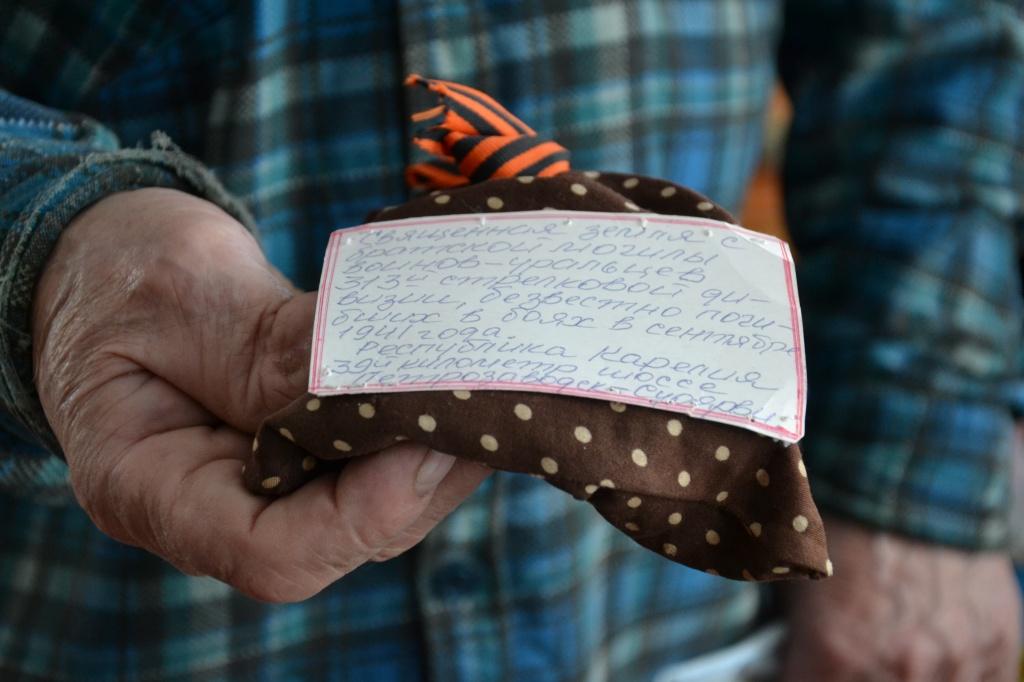 Священная земля с
братской могилы
воинов-уральцев
313й стрелковой ди-
визии, безвестно поги-
бших в боях в сентябре
1941 года.
Республика Карелия
39й километр шоссе
Петрозаводск-Суоярви